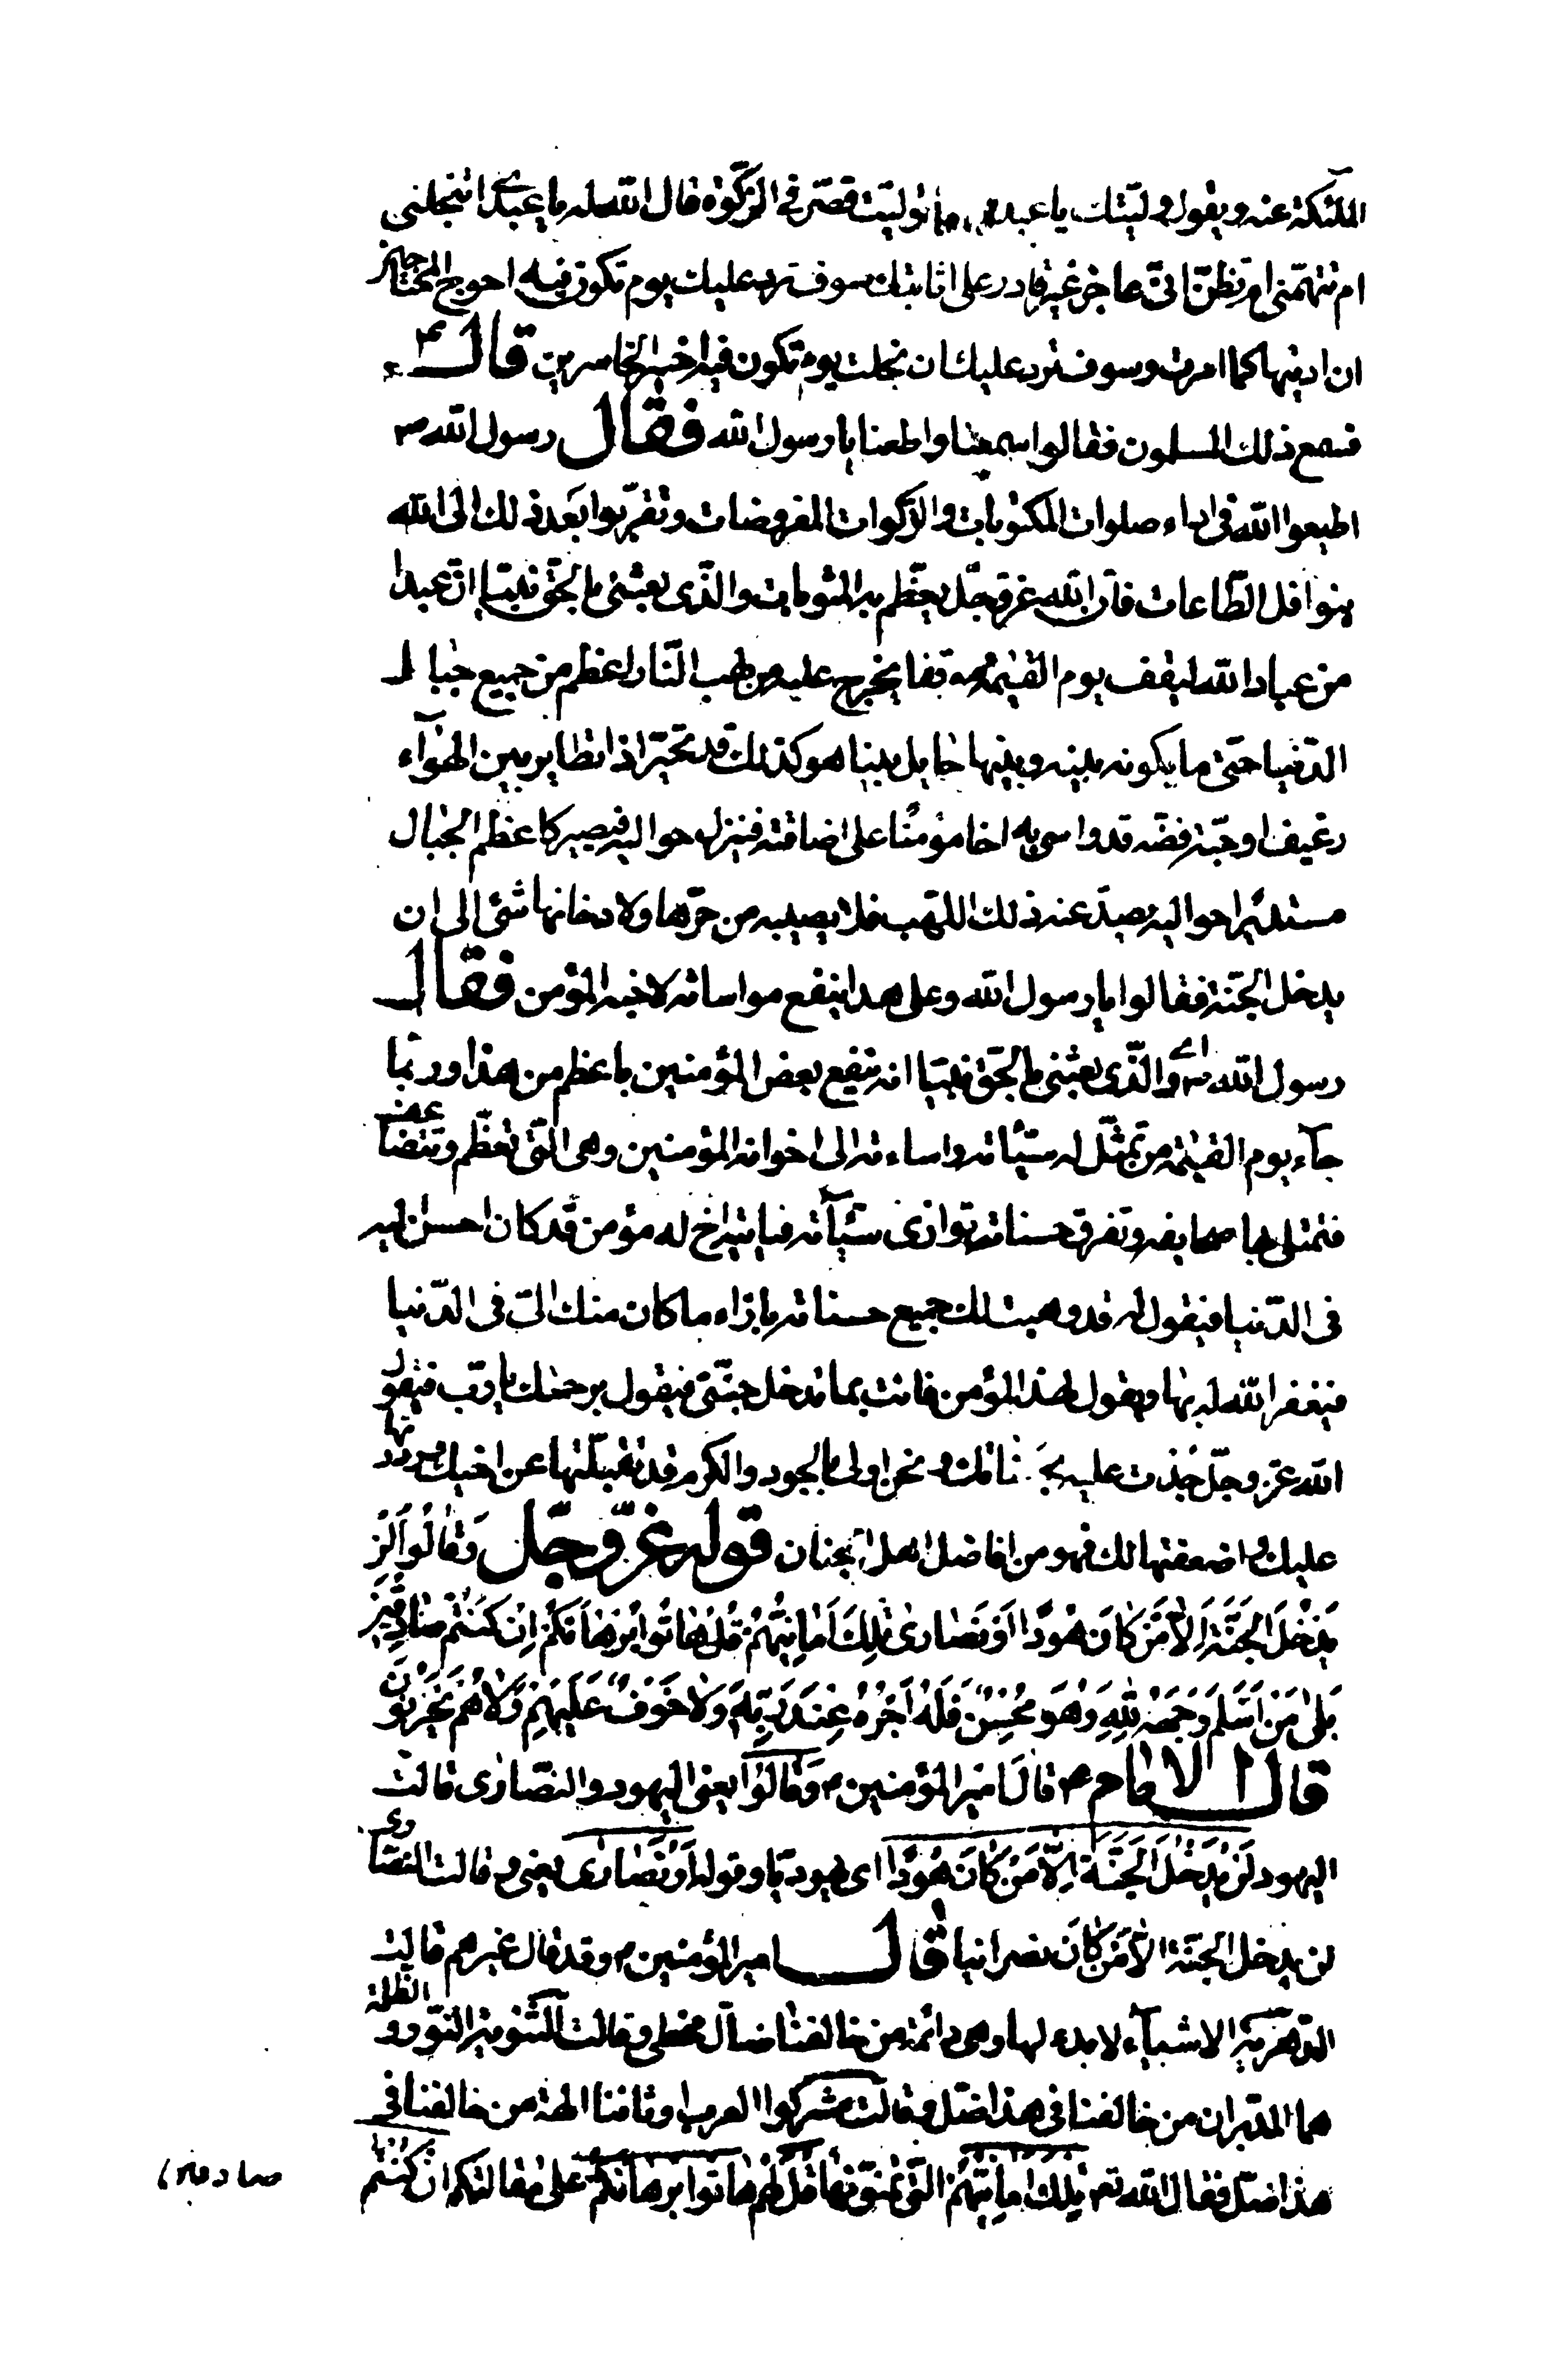 الملئكة عنه ويقول لبيك يا عبدي ما توليت قصر في الزكوة قال الله له يا عبدي اتبخلني
ام تتهمني ام تظن اني عاجز غير قادر على اثابتك سوف يرد عليك يوم تكون فيه احوج المحتاجين
ان اديتها كما امرت وسوف يرد عليك ان بخلت يوم تكون فيه اخسر الخاسرين قال ع
فسمع ذلك المسلمون فقالوا سمعنا واطعنا يا رسول الله فقال رسول الله ص
اطيعوا الله في اداء صلوات المكتوبات والزكوات المفروضات وتقربوا بعد ذلك الى الله
بنوافل الطاعات فان الله عز وجل يعظم به المثوبات والذي بعثني بالحق نبيا ان عبدا
من عباد الله ليقف يوم القيمة موقفا يخرج عليه من لهب النار اعظم من جميع جبال
الدنيا حتى ما يكون بينه وبينها حايل بينا هو كذلك قد تحير اذ تطاير بين الهوآء
رغيف او حبة فضه قد واسى به اخا مؤمنا على اضافته فينزل حواليه فيصير كاعظم الجبال
مستديرا حواليه يصد عنه ذلك اللهب فلا يصيبه من حرها ولا دخانها شئ الى ان
يدخل الجنة فقالوا يا رسول الله وعلى هذا ينفع مواساته لاخيه المؤمن فقال
رسول الله ص اي والذي بعثني بالحق نبيا انه لينفع بعض المؤمنين باعظم من هذا وربما
جآء يوم القيمة من تمثل له سيئاته واساءته الى اخوانه المؤمنين وهي التي تعظم وتتضاعف
فتمتلي بها صحايفه وتفرق حسناته توازي سيآته فياتيه اخ له مؤمن قد كان احسن اليه
في الدنيا فيقول له قد وهبت لك جميع حسناته بازاء ما كان منك الي في الدنيا
فيغفر الله له بها ويقول لهذا المؤمن فانت بما تدخل جنتي فيقول برحمتك يا رب فيقول
الله عز وجل جدت عليه بحسناتك ونحن اولى بالجود والكرم قد تقبلتها عن اخيك ورددتها
عليك واضعفتها لك فهو من افاضل اهل الجنان قوله عز وجل وَقَالُوا لَنْ
يَدْخُلَ الْجَنَّةَ اِلَّا مَنْ كَانَ هُودًا اَوْ نَصَارٰى تِلْكَ اَمَانِيُّهُمْ قُلْ هَاتُوا بُرْهَانَكُمْ اِنْ كُنْتُمْ صَادِقِينَ
بَلٰى مَنْ اَسْلَمَ وَجْهَهُ لِلّٰهِ وَهُوَ مُحْسِنٌ فَلَهُ اَجْرُهُ عِنْدَ رَبِّهِ وَلَا خَوْفٌ عَلَيْهِمْ وَلَا هُمْ يَحْزَنُونَ
قال الامام ع قال امير المؤمنين ع وقالوا يعني اليهود والنصارى قالت
اليهود لَنْ يَدْخُلَ الْجَنَّةَ اِلَّا مَنْ كَانَ هُودًا اي يهوديا وقوله اَوْ نَصَارٰى يعني وقالت النصارى
لن يدخل الجنة الا من كان نصرانيا قال امير المؤمنين ع وقد قال غيرهم قالت
الدهرية الاشيآء لا بدء لها وهي دائمة من خالفنا ضال مخطي وقالت الثنوية النور والظلمة
هما المدبران من خالفنا في هذا ضل وقالت مشركوا العرب اوثاننا الهة من خالفنا في
هذا ضل فقال الله تع تِلْكَ اَمَانِيُّهُمْ التي يتمنونها قل لهم هاتوا برهانكم على مقالتكم ان كنتم
صادقين